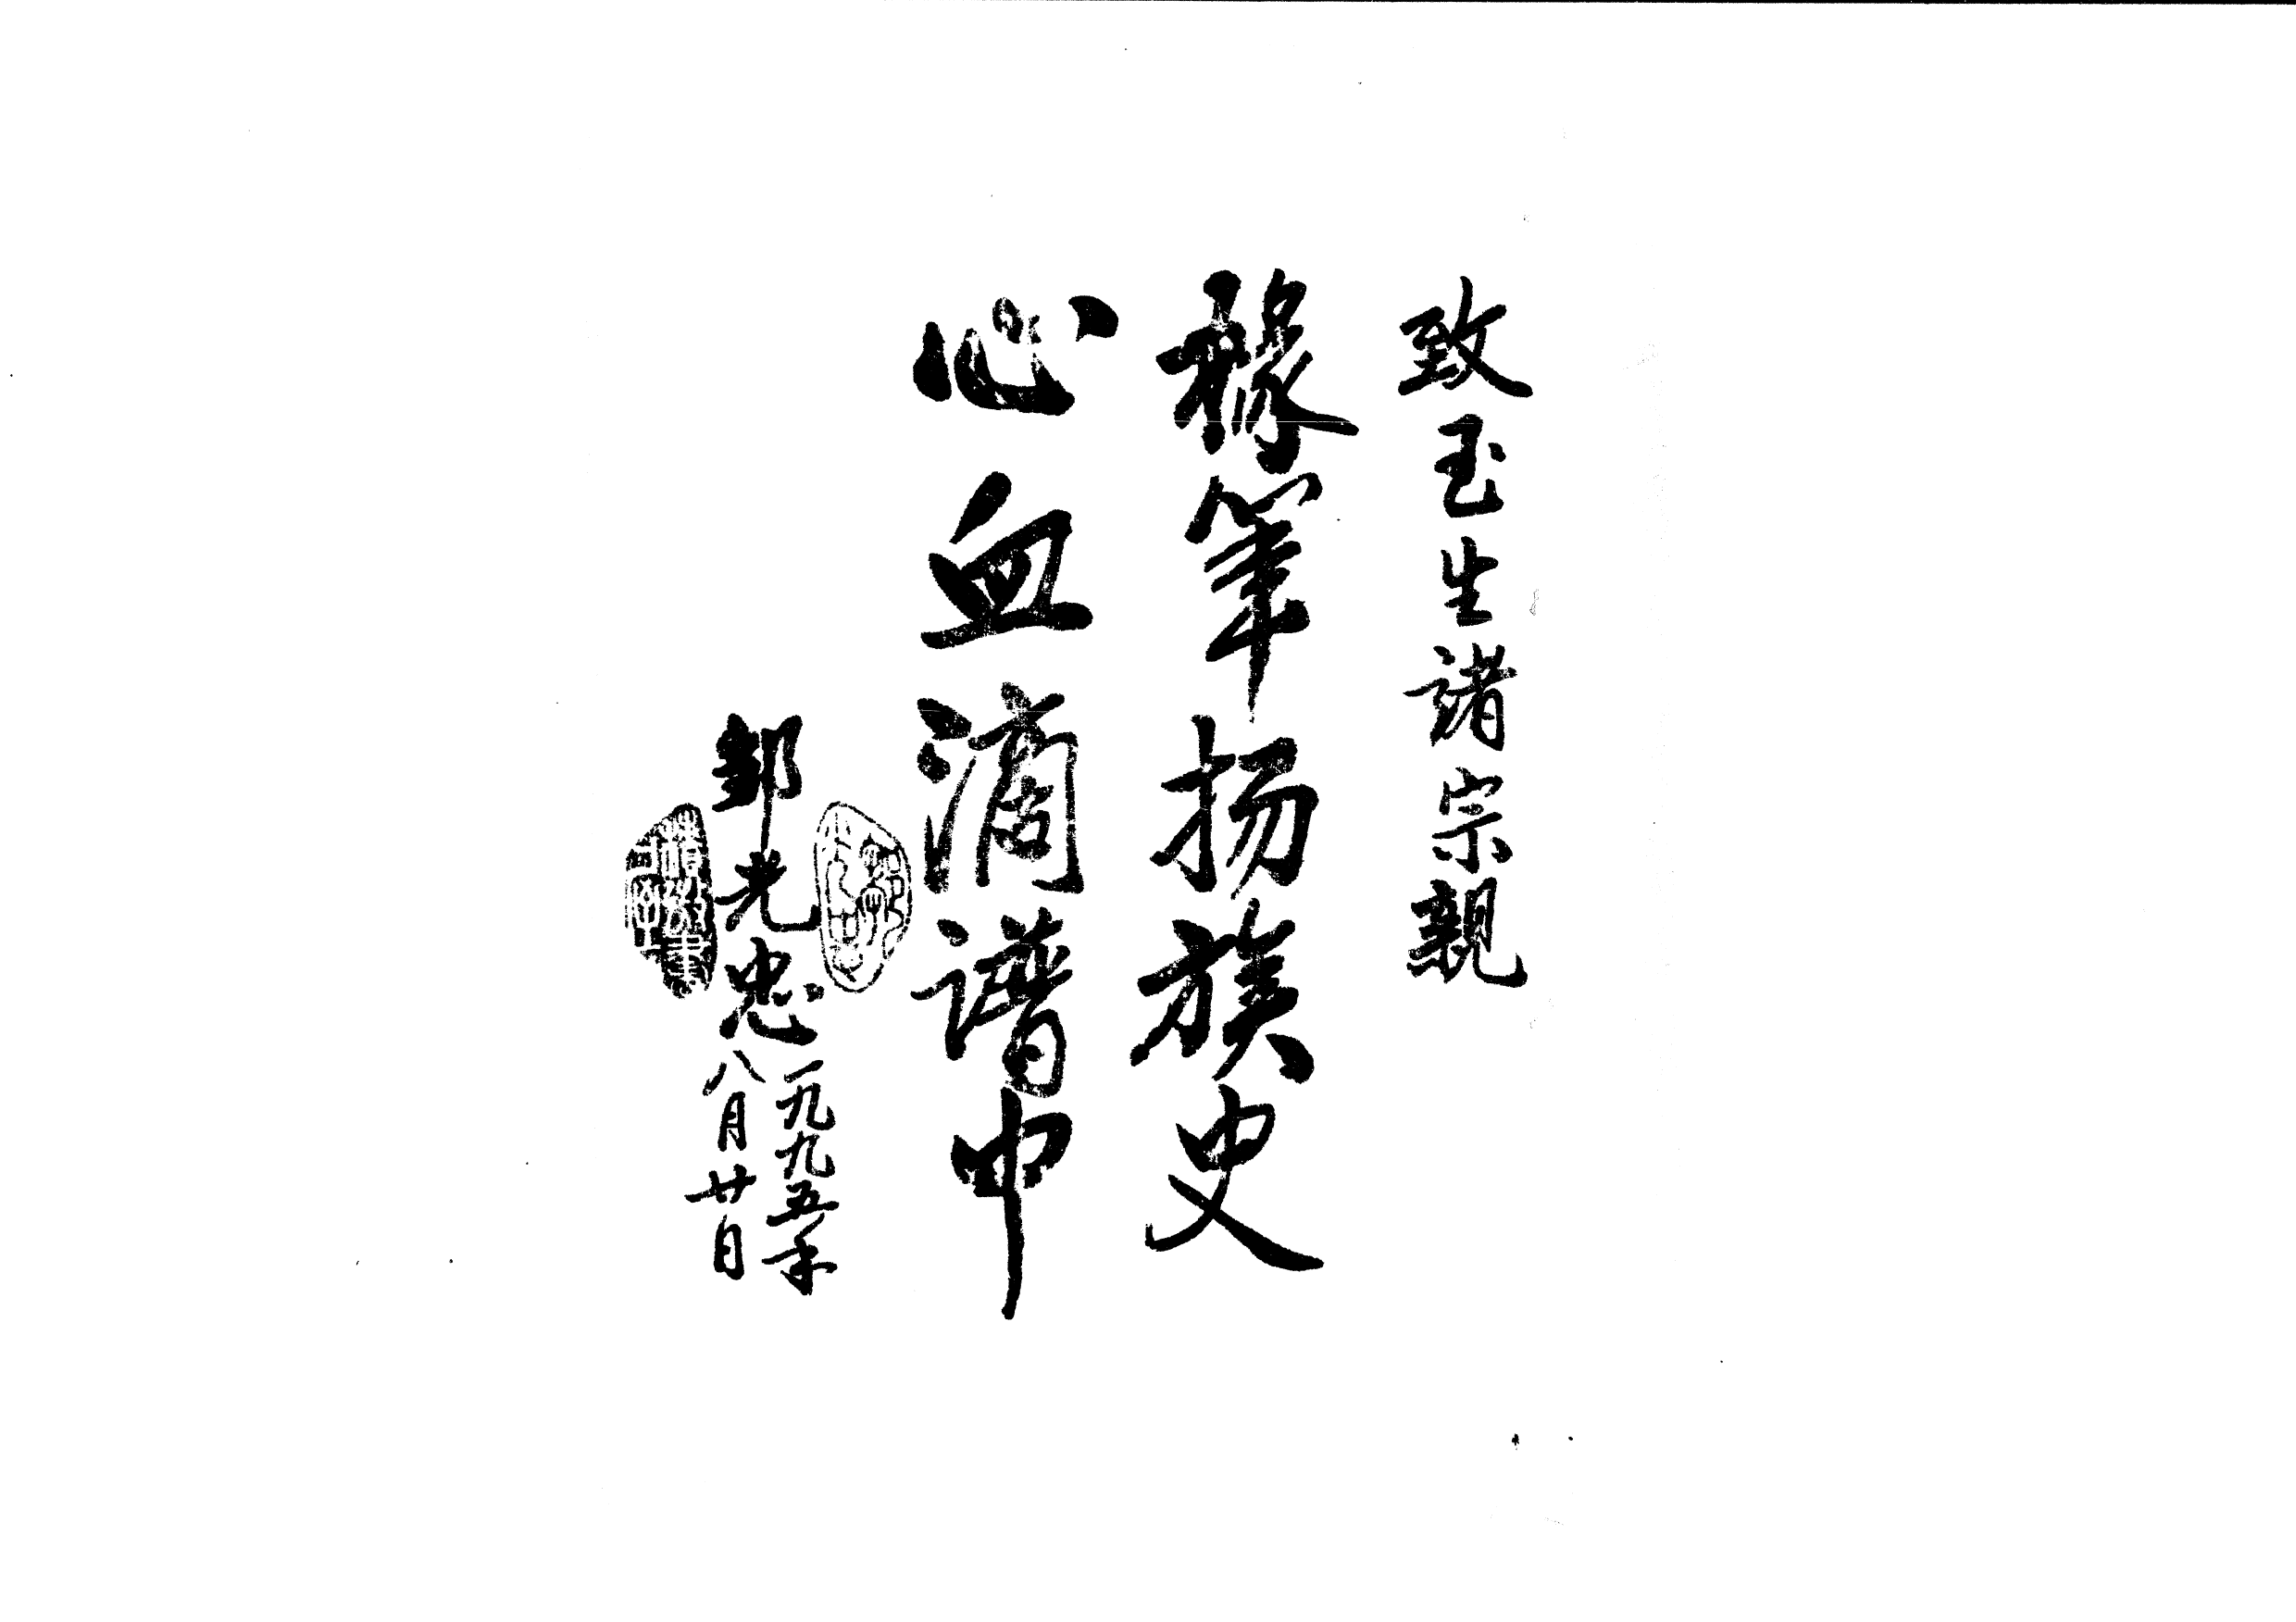 致玉生諸宗親
椽筆扬族史
心血滴譜中
鄒光忠
一九九五年
八月廿日